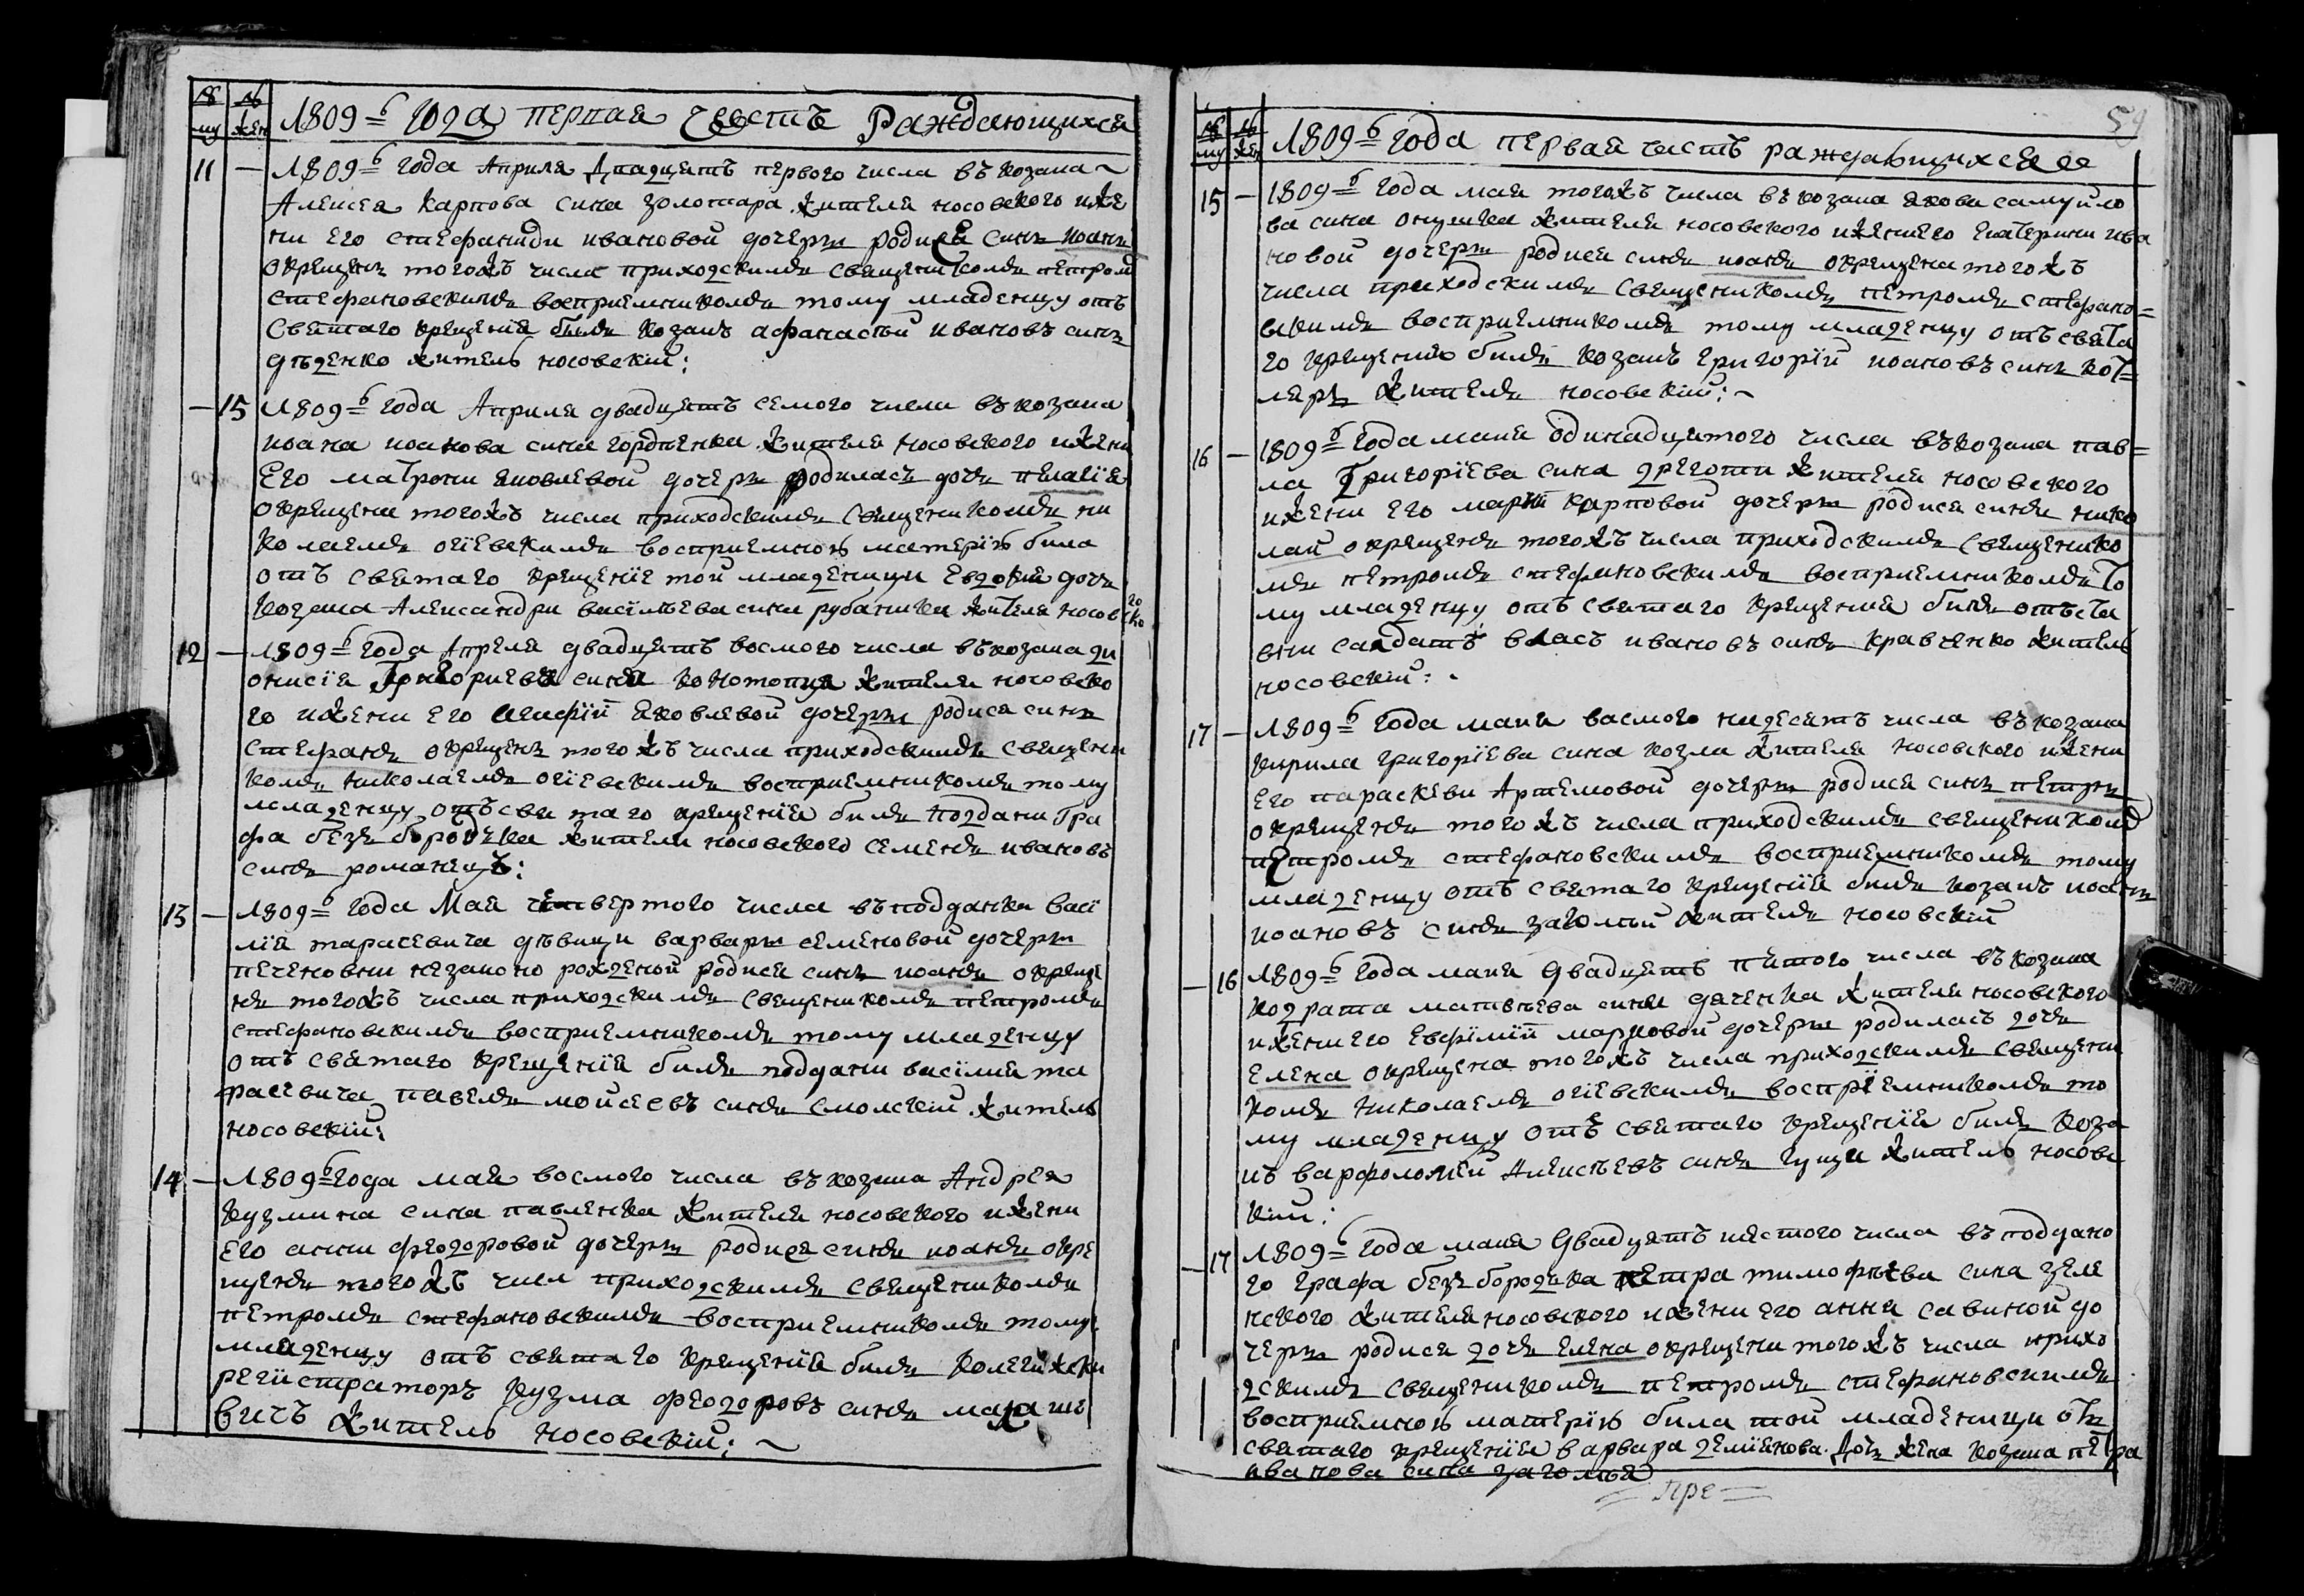 му жен 1809 = го года первая часть Раждающихся
11 — 1809 = го года Априля двадцать первого числа въ козака
Алексея Карпова сина золотара жителя носовского ижэ
ни его стефаниди ивановой дочери родися синъ иоанъ
окрещенъ тогожъ числа приходскимъ священикомъ петром
стефановскимъ восприемникомъ тому младенцу отъ
святаго крещения билъ козакъ афанасий ивановъ синъ
дѣденко житель носовский:
— 15 1809 = го года Априля двадцать семого числа въ козака
иоана иоанова сина гордѣенка жителя носовского ижени
Его матрони яковлевой дочери родилась дочъ пелагiя
окрещена тогожъ числа приходскимъ священикомъ ни
колаемъ огiевскимъ восприемною матерiю била
отъ святаго крещенiя той младеници евдокия дочъ
козака Александри василъева сина рубаника жителя носовско
го
12 — 1809 = го года Апреля двадцать восмого числа въ козака ди
онисiя Григориева сина конотопца жителя носовско
го ижени его агафiй яковлевой дочери родися синъ
стефанъ окрещенъ тогожъ числа приходскимъ священи
комъ николаемъ огiевскимъ восприемникомъ тому
младенцу отъ святаго крещенiя билъ поддани гра
фа безъ бородъка жители носовского семенъ ивановъ
синъ романецъ:
13 — 1809 = го года Мая четвертого числа въ подданки васi
лiя тарасевича дѣвици варвари семеновой дочери
печеновни незаконо рожденой родися синъ иоанъ окреще
нъ тогожъ числа приходскимъ священикомъ петромъ
стефановскимъ восприемникомъ тому младенцу
отъ святаго крещенiя билъ поддани василия та
расевича павелъ мойсеевъ синъ смолский житель
носовскiй:
14 — 1809 = го года мая восмого числа въ козака Андрея
кузмина сина павленка жителя носовского ижени
Его анни феодоровой дочери родися синъ иоанъ окре
щенъ тогожъ числ приходскимъ священикомъ
петромъ стефановскимъ восприемникомъ тому
младенцу отъ святаго крещенiя билъ колегiжски
регiстраторъ кузма феодоровъ синъ
вичъ житель носовскiй: ~
му жен 1809 = го года первая часть раждающихся
15 — 1809 = го года мая тогожъ числа въ козака якова самуйло
ва сина онушка жителя носовского иженыего екатерини ива
новой дочери родися синъ иоанъ окрещена тогожъ
числа приходскимъ священикомъ петромъ стефано=
вскимъ восприемникомъ тому младенцу отъ свята
го крещения билъ козакъ григорiй иоановъ синъ кот=
ляръ жителъ носовскiй: ~
16 — 1809 = го года мания одинадцатого числа въ козака пав=
ла Григорiева сина дреготи жителя носовского
ижени его марий карповой дочери родися синъ нико
лай окрещенъ тогожъ числа приходскимъ священико
мъ петромъ стефановскимъ восприемникомъ то
му младенцу отъ святаго крещения билъ отъста
вни салдатъ власъ ивановъ синъ кравченко житель
носовскiй:
17 — 1809 = го года мания васмого надесять числа въ козака
кирила григорiева сина козла жителя носовского ижени
его параскеви Артемовой дочери родися синъ петръ
окрещенъ тогожъ числа приходскимъ священиком
петромъ стефановскимъ восприемникомъ тому
младенцу отъ святаго крещенiя билъ козакъ иоанъ
иоановъ синъ заколый жителъ носовскiй
— 16 1809 = го года мания двадцать пятого числа въ козака
кодрата матвѣева сина дяченка жителя носовского
ижениего евфiмiй марковой дочери родилась дочъ
елена окрещена тогожъ числа приходскимъ священи
комъ николаемъ огiевскимъ воспрiемникомъ то
му младенцу отъ святаго крещенiя билъ коза
къ варфоломей Алексѣевъ синъ гуща житель носовс
кiй:
— 17 1809 = го года мания двадцать шестого числа въ поддано
го графа безъ бородъка петра тимофѣева сина зеле
нского жителя носовского ижени его анни савиной до
чери родися дочъ елена окрещени тогожъ числа прихо
дскимъ священикомъ петромъ стефановскимъ
восприемною матерiю била той младеници отъ
святаго крещенiя варвара демянова дочъ жена козака петра
иванова сина заголия
= пре =